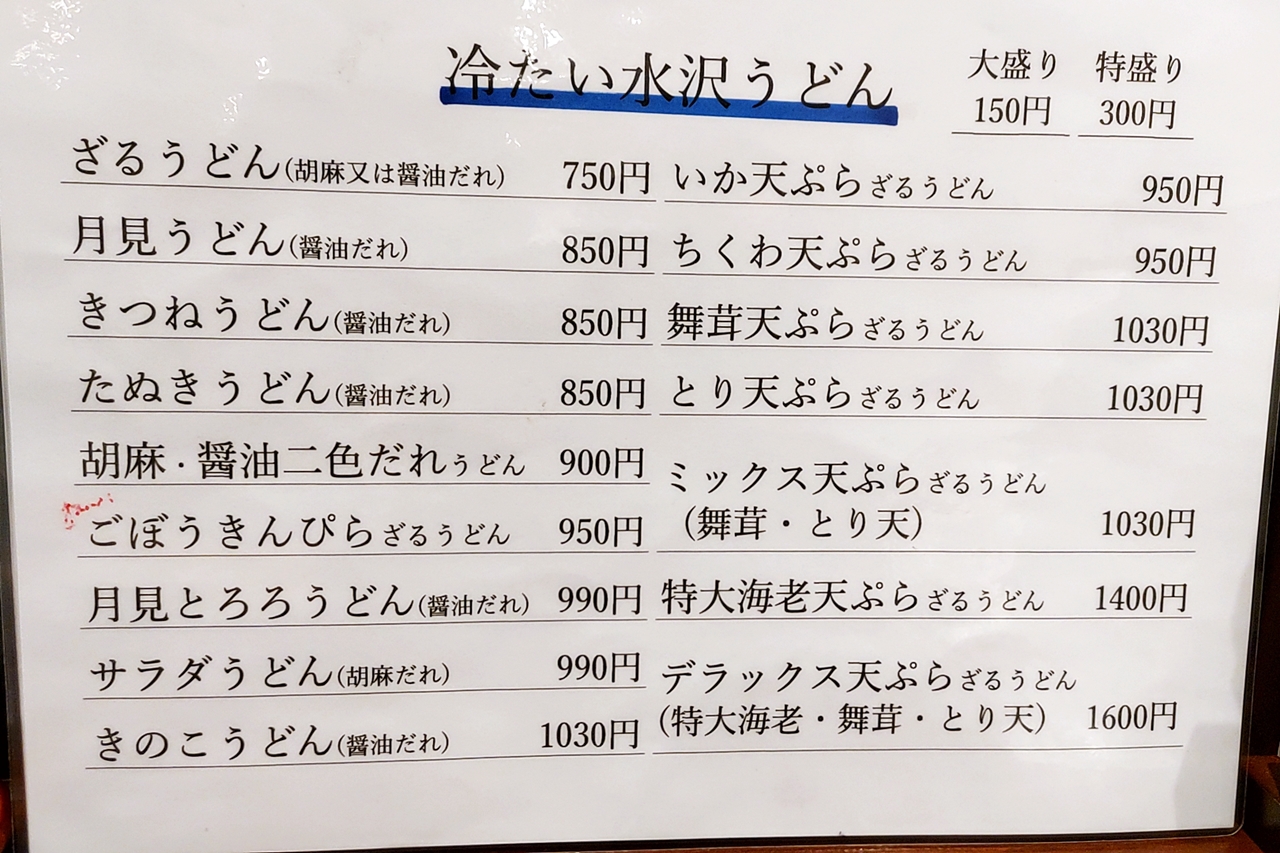 冷たい水沢うどん
大盛り 特盛り
150円 300円
ざるうどん(胡麻又は醤油だれ) 750円
月見うどん(醤油だれ) 850円
きつねうどん(醤油だれ) 850円
たぬきうどん(醤油だれ) 850円
胡麻・醤油二色だれうどん 900円
ごぼうきんぴらざるうどん 950円
月見とろろうどん(醤油だれ) 990円
サラダうどん(胡麻だれ) 990円
きのこうどん(醤油だれ) 1030円
いか天ぷらざるうどん 950円
ちくわ天ぷらざるうどん 950円
舞茸天ぷらざるうどん 1030円
とり天ぷらざるうどん 1030円
ミックス天ぷらざるうどん
(舞茸・とり天) 1030円
特大海老天ぷらざるうどん 1400円
デラックス天ぷらざるうどん
(特大海老・舞茸・とり天) 1600円